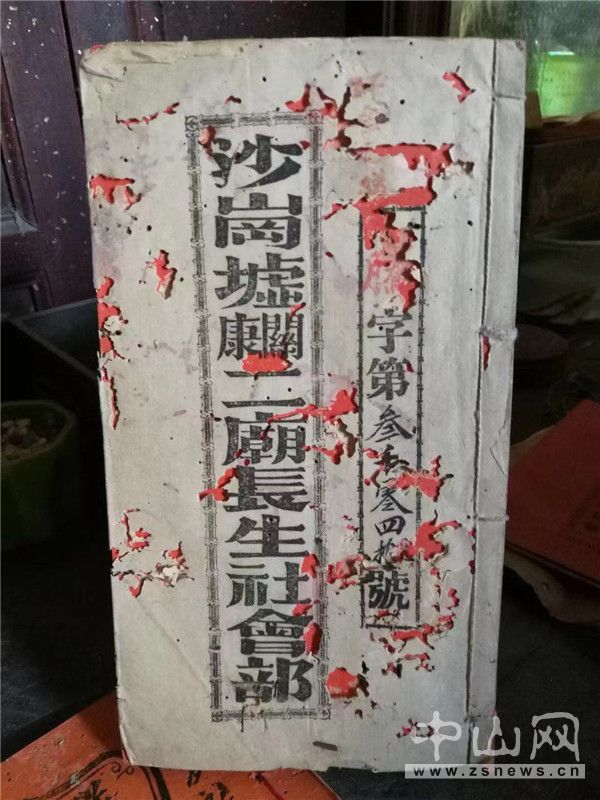 字第叁千零四拾號
沙崗墟關康二廟長生社會部
中山网
www.zsnews.cn